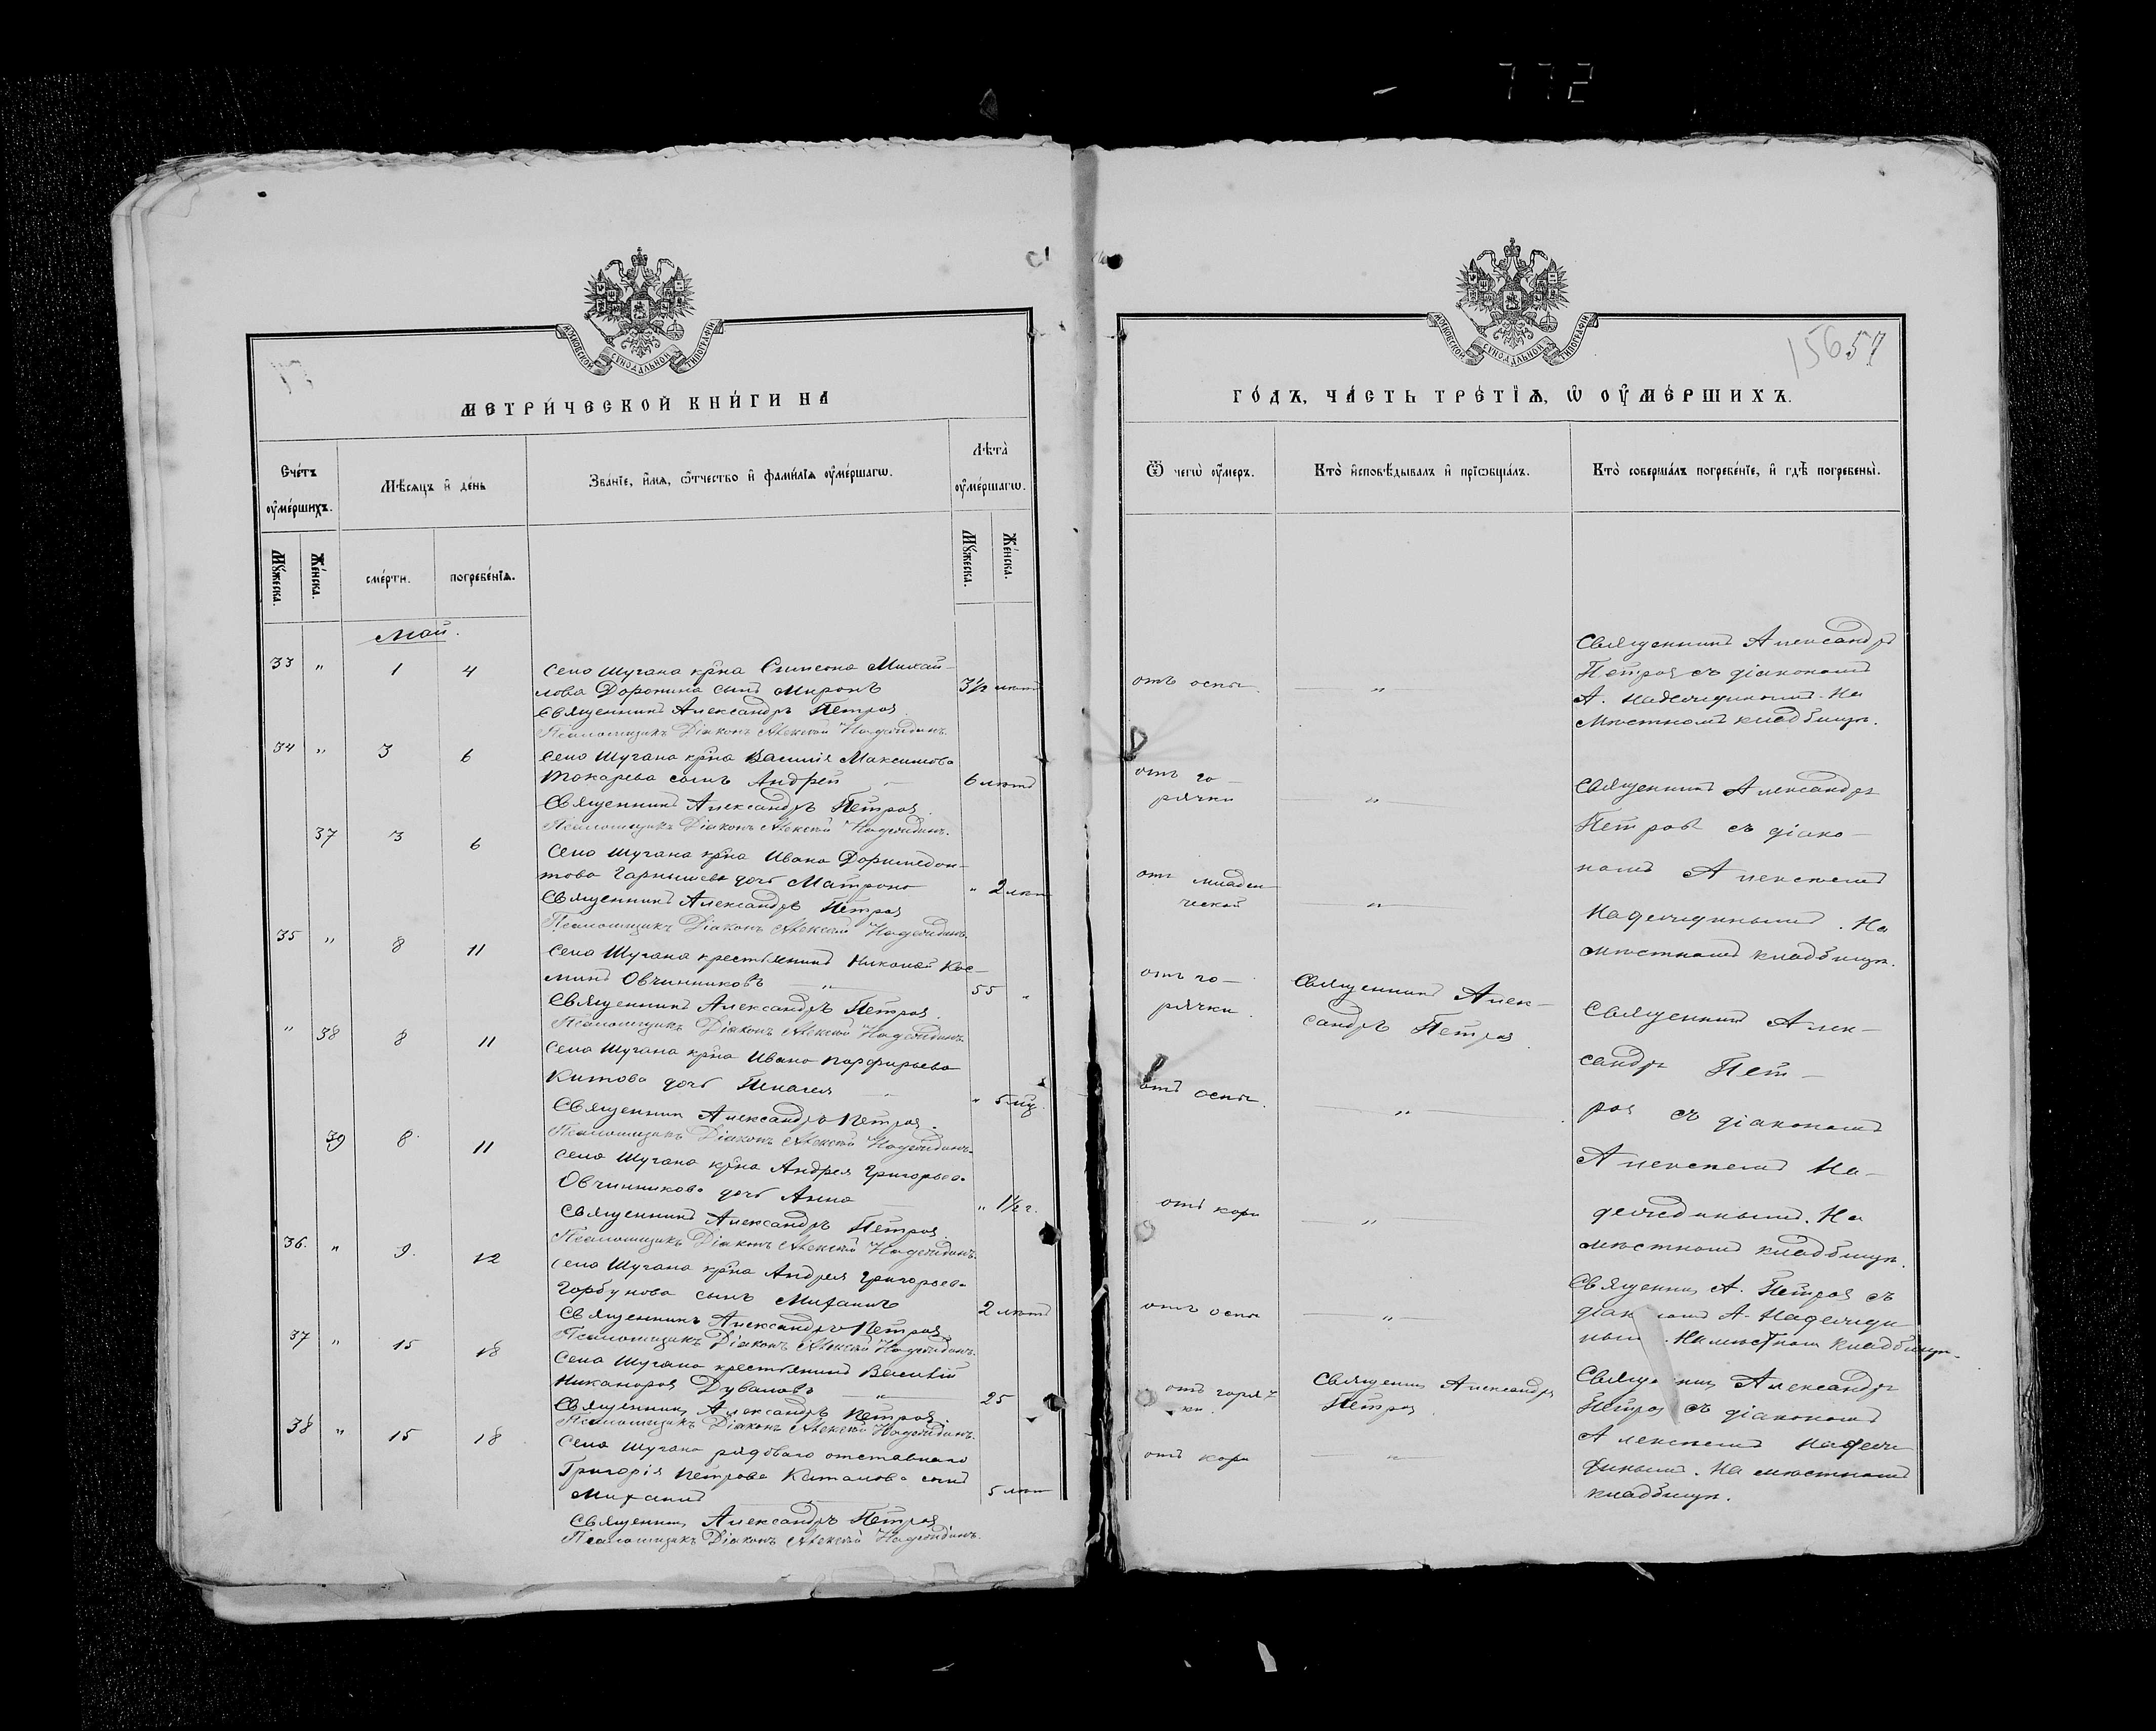 772
МОСКОВСКОЙ СѴНОДАЛЬНОЙ ТИПОГРАФІИ
МЕТРИ́ЧЕСКОЙ КНИ́ГИ НА
Сче́тъ ᲂу҆ме́ршихъ.
Мѣ́сяцъ и҆ де́нь
Зва́нїе, и҆́мѧ, ѻ҆́тчество и҆ фами́лїѧ ᲂу҆ме́ршагѡ.
Лѣ́та ᲂу҆ме́ршагѡ.
Мꙋ́жеска.
Же́нска.
сме́рти.
погребе́нїѧ.
Мꙋ́жеска.
Же́нска.
Май.
33 " 1 4 Села Шугана кр-на Симеона Михай-
лова Доронина сынъ Миронъ 3½ лѣтъ
Священникъ Александръ Петровъ
Псаломщикъ Діаконъ Алексѣй Надеждинъ.
34 " 3 6 Села Шугана кр-на Василія Максимова
Токарева сынъ Андрей 6 лѣтъ
Священникъ Александръ Петровъ.
Псаломщикъ Діаконъ Алексѣй Надеждинъ.
37 3 6 Села Шугана кр-на Ивана Доримедон-
това дочь Матрона " 2 лѣтъ
Священникъ Александръ Петровъ
Псаломщикъ Діаконъ Алексѣй Надеждинъ.
35 " 8 11 Села Шугана крестьянинъ Николай Кос-
минъ Овчинниковъ " 55 "
Священникъ Александръ Петровъ.
Псаломщикъ Діаконъ Алексѣй Надеждинъ.
" 38 8 11 Села Шугана кр-на Ивана Парфирьева
Китова дочь Пелагея " 5 мц.
Священник Александръ Петровъ.
Псаломщикъ Діаконъ Алексѣй Надеждинъ.
39 8 11 Села Шугана кр-на Андрея Григорьева
Овчинникова дочь Анна " 1½ г.
Священникъ Александръ Петровъ
Псаломщикъ Діаконъ Алексѣй Надеждинъ.
36. " 9. 12 Села Шугана кр-на Андрея Григорьева
Горбунова сынъ Михаилъ 2 лѣтъ
Священникъ Александръ Петровъ
Псаломщикъ Діаконъ Алексѣй Надеждинъ.
37 " 15 18 Села Шугана крестьянинъ Василій
Никаноровъ Дуваловъ " 25
Священник Александръ Петровъ.
Псаломщикъ Діаконъ Алексѣй Надеждинъ.
38 " 15 18 Села Шугана рядового отставнаго
Григорія Петрова сынъ
Михаилъ 5 лѣт
Священник Александръ Петровъ
Псаломщикъ Діаконъ Алексѣй Надеждинъ.
МОСКОВСКОЙ СѴНОДАЛЬНОЙ ТИПОГРАФІИ
156 57
ГО́ДЪ, ЧА́СТЬ ТРЕ́ТЇѦ, Ѡ҆ ᲂУ҆МЕ́РШИХЪ.
Ѿ чегѡ̀ ᲂу҆́меръ.
Кто̀ и҆сповѣ́дывалъ и҆ прїѡбща́лъ.
Кто̀ соверша́лъ погребе́нїе, и҆ гдѣ̀ погребены̀.
отъ оспы. "
Священникъ Александръ
Петровъ съ діакономъ
А. Надеждинымъ. На
мѣстномъ кладбищѣ.
отъ го-
рячки "
отъ младен-
ческой "
Священникъ Александръ
Петровъ съ діако-
номъ Алексѣемъ
Надеждинымъ. На
мѣстномъ кладбищѣ.
отъ го-
рячки.
Священникъ Алек-
сандръ Петровъ
отъ оспы. "
отъ кори "
Священникъ Алек-
сандръ Пет-
ровъ съ діакономъ
Алексѣемъ На-
деждинымъ. На
мѣстномъ кладбищѣ.
отъ оспы "
Священник А. Петровъ съ
А. Надежди-
нымъ. На мѣстном кладбищѣ.
отъ горяч-
ки.
Священник Александръ
Петровъ
отъ кори "
Священник Александръ
Петровъ съ діакономъ
Алексѣемъ Надеж-
динымъ. На мѣстномъ
кладбищѣ.